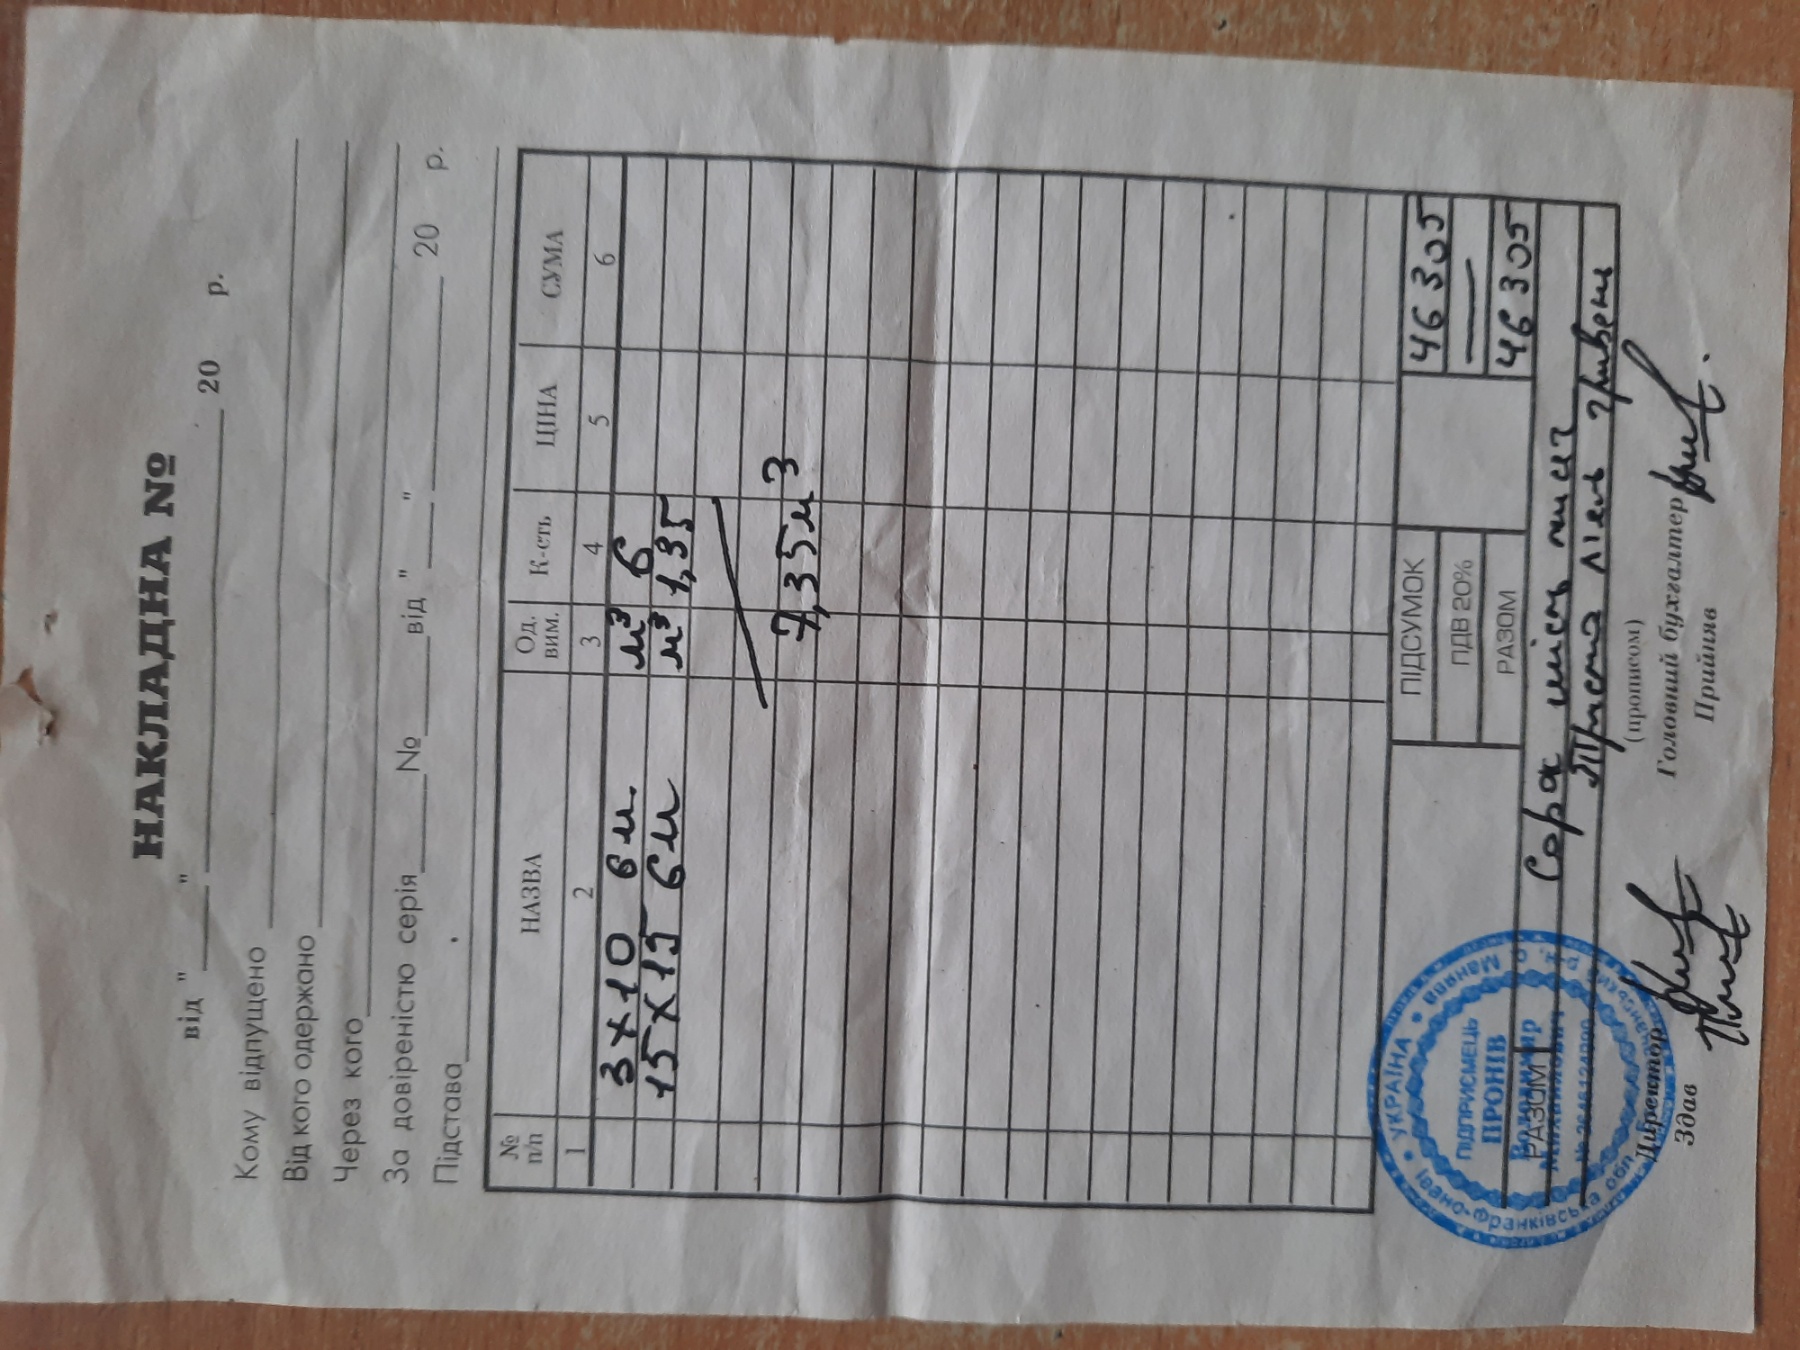 НАКЛАДНА №
від " " 20 р.
Кому відпущено
Від кого одержано
Через кого
За довіреністю серія № від " " 20 р.
Підстава
№ п/п НАЗВА Од. вим. К-сть ЦІНА СУМА
1 2 3 4 5 6
3 х 10 6 м. м³ 6
15 х 15 6 м м³ 1,35
7,35 м³
ПІДСУМОК 46 305
ПДВ 20% —
РАЗОМ 46 305
РАЗОМ Сорок шість тисяч
Триста п'ять гривень
(прописом)
Директор Головний бухгалтер
Здав Прийняв
УКРАЇНА
Івано-Франківська обл.
Манява
ПІДПРИЄМЕЦЬ
ПРОНІВ
Володимир
Михайлович